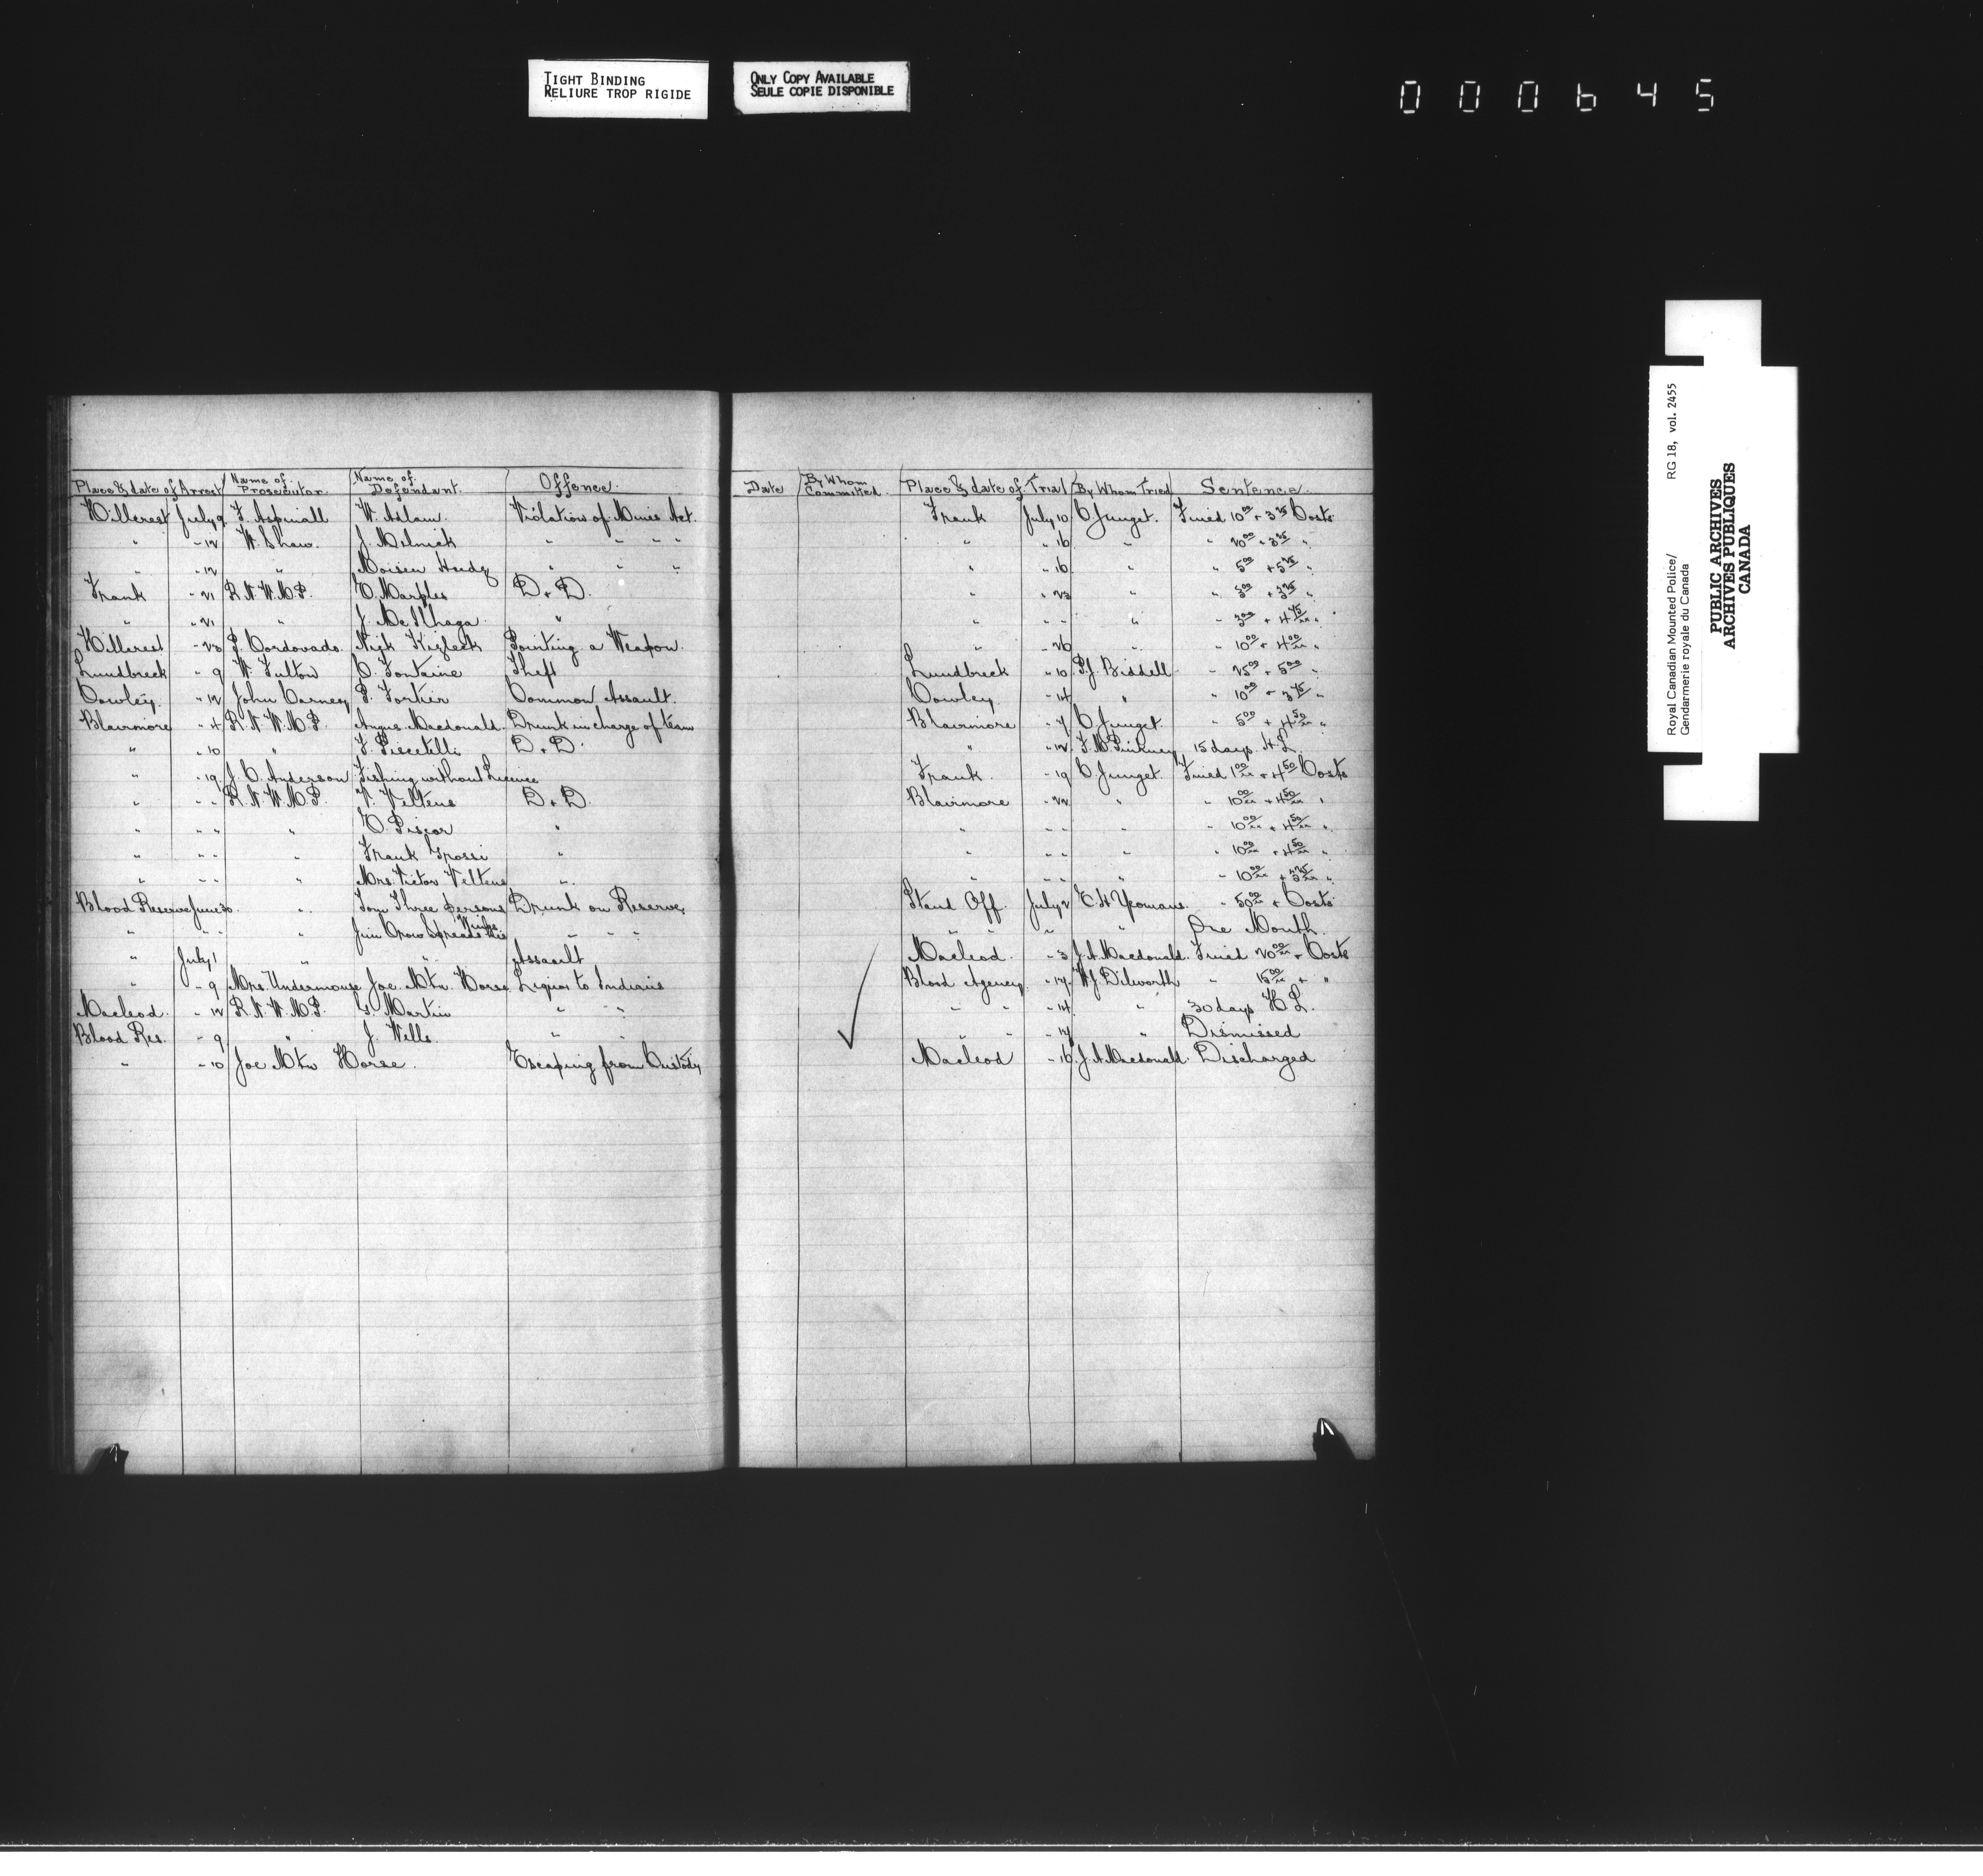 TIGHT BINDING
RELIURE TROP RIGIDE
ONLY COPY AVAILABLE
SEULE COPIE DISPONIBLE
000645
Royal Canadian Mounted Police/ RG 18, vol. 2455
Gendarmerie royale du Canada
PUBLIC ARCHIVES
ARCHIVES PUBLIQUES
CANADA
Place & date of Arrest Name of Prosecutor Name of Defendant Offence Date By Whom Committed Place & date of Trial By Whom Tried Sentence
Hillcrest July 9 F. Aspinall W. Adlam Violation of Mines Act. Frank July 10 C. Junget. Fined 10 00 + 3 75 Costs
" " 12 W. Shaw. J. Melnick " " " " " " 16 " " 20 00 + 3 75 "
" " 12 " " " " " " 16 " " 5 00 + 5 75 "
Frank " 21 R.N.W.M.P. C. Marples D. + D. " " 23 " " 3 00 + 3 75 "
" " 21 " J. McIlhaga " " " " " " 3 00 + 4 75 "
Hillcrest " 23 P. Cordovado Nick Kizleck Pointing a Weapon. " " 26 " " 10 00 + 4 00 "
Lundbreck " 9 W. Fulton C. Fontaine Theft Lundbreck " 10 P.J. Biddell " 25 00 + 5 00 "
Cowley " 12 John Carney P. Fortier Common Assault. Cowley " 14 " " 10 00 + 3 75 "
Blairmore " 4 R.N.W.M.P. Angus Macdonald Drunk in charge of team Blairmore " 7 C. Junget. " 5 00 + 4 50 "
" " 10 " F. Piscetelli D. + D. " " 12 F. M. Pinkney 15 days H.L.
" " 19 J. C. Anderson Fishing without License Frank " 19 C. Junget. Fined 1 00 + 4 50 Costs
" " " R.N.W.M.P. V. Veltens D. + D. Blairmore " 22 " " 10 00 + 4 50 "
" " " " C. Piscor " " " " " " 10 00 + 4 50 "
" " " " Frank Grossi " " " " " " 10 00 + 4 50 "
" " " " Mrs. Victor Veltens " " " " " " 10 00 + "
Blood Reserve June 30 " Tom Three Persons Drunk on Reserve Stand Off July 2 E.H. Yeomans " 50 00 + Costs
" " " " Jim Crow Spreads His Wings " " " " " " " One Month.
" July 1 " " Assault Macleod " 3 J.A. Macdonald. Fined 20 00 + Costs
" " 9 Mrs. Undermouse Joe Mtn. Horse Liquor to Indians Blood Agency " 17 W.J. Dilworth " 15 00 + "
Macleod " 12 R.N.W.M.P. G. Martin " " " " " 14 " 30 days H.L.
Blood Res. " 9 " J. Wells. " " " " " 14 " Dismissed
" " 10 Joe Mtn Horse. Escaping from Custody Macleod " 16 J.A. Macdonald. Discharged